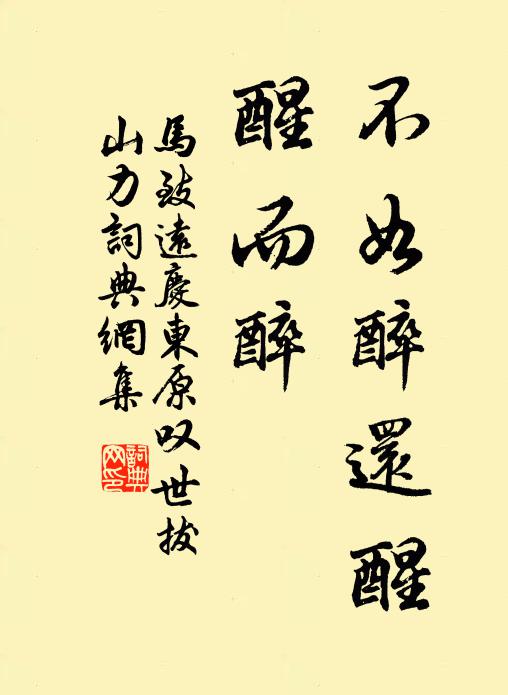 不如醉還醒
醒而醉
馬致遠慶東原叹世拔
山力詞典網集
詞典网印